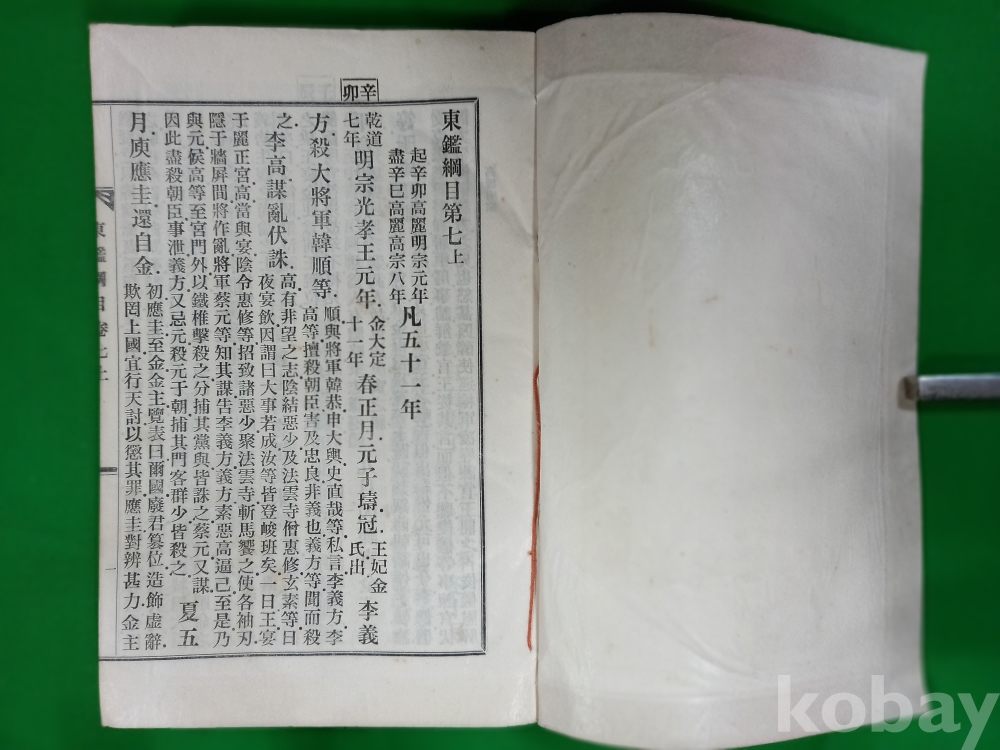 辛卯
東鑑綱目第七上
起辛卯高麗明宗元年
盡辛巳高麗高宗八年
凡五十一年
乾道七年
明宗光孝王元年
金大定十一年
春正月元子璹冠
王妃金氏出
李義
方殺大將軍韓順等
順與將軍韓恭申大輿史直哉等私言李義方李
高等擅殺朝臣害及忠良非義也義方等聞而殺
之
李高謀亂伏誅
高有非望之志陰結惡少及法雲寺僧惠修玄素等日
夜宴飮因謂曰大事若成汝等皆登峻班矣一日王宴
于麗正宮高當與宴陰令惠修等招致諸惡少聚法雲寺斬馬饗之使各袖刃
隱于牆屛間將作亂將軍蔡元等知其謀告李義方義方素惡高逼己至是乃
與元候高等至宮門外以鐵椎擊殺之分捕其黨與皆誅之蔡元又謀
因此盡殺朝臣事泄義方又忌元殺元于朝捕其門客群少皆殺之
夏五
月庾應圭還自金
初應圭至金金主覽表曰爾國廢君簒位造飾虛辭
欺罔上國宜行天討以懲其罪應圭對辨甚力金主
東鑑綱目卷七上
一
kobay